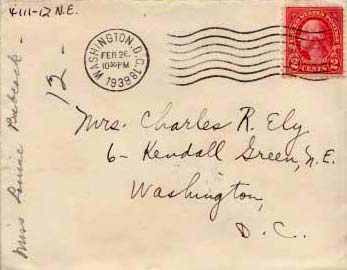 4111-12 N.E.
WASHINGTON, D.C.
FEB 26
10 30 PM
1939
UNITED STATES POSTAGE
2 CENTS 2
12 -
Miss Louise Babcock -
Mrs. Charles R. Ely
6 - Kendall Green, N.E.
Washington,
D. C.